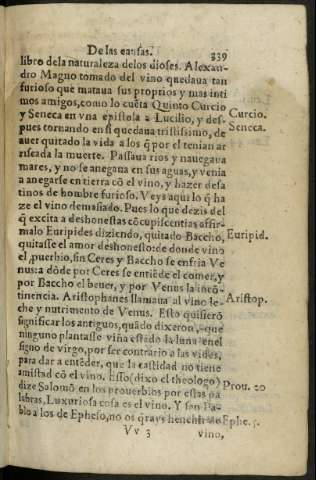 De las causas. 339
libro dela naturaleza delos dioses. Alexan-
dro Magno tomado del vino quedaua tan
furioso que mataua sus proprios y mas inti
mos amigos, como lo cuēta Quinto Curcio
Curcio.
y Seneca en vna epistola a Lucilio, y des-
Seneca.
pues tornando en si quedaua tristissimo, de
auer quitado la vida a los q̄ por el tenian ar
riscada la muerte. Passaua rios y nauegaua
mares, y no se anegaua en sus aguas, y venia
a anegarse en tierra cō el vino, y hazer desa
tinos de hombre furioso. Veys aqui lo q̄ ha
ze el vino demasiado. Pues lo que dezis del
q̄ excita a deshonestas cōcupiscentias affir-
malo Euripides diziendo, quitado Baccho,
Euripid.
quitasse el amor deshonesto: de donde vino
el ꝓuerbio, sin Ceres y Baccho se enfria Ve
nus: a dōde por Ceres se entiēde el comer, y
por Baccho el beuer, y por Venus la incō-
tinencia. Aristophanes llamaua al vino le-
Aristop.
che y nutrimento de Venus. Esto quisierō
significar los antiguos, quādo dixeron, que
ninguno plantasse viña estādo la luna en el
signo de virgo, por ser contrario a las vides,
para dar a entēder, que la castidad no tiene
amistad cō el vino. Esso (dixo el theologo)
Prou. 20
dize Salomō en los prouerbios por estas pa
labras, Luxuriosa cosa es el vino. Y san Pa-
blo a los de Epheso, no os q̄rays henchir de
Ephe. 5.
Vv 3 vino,